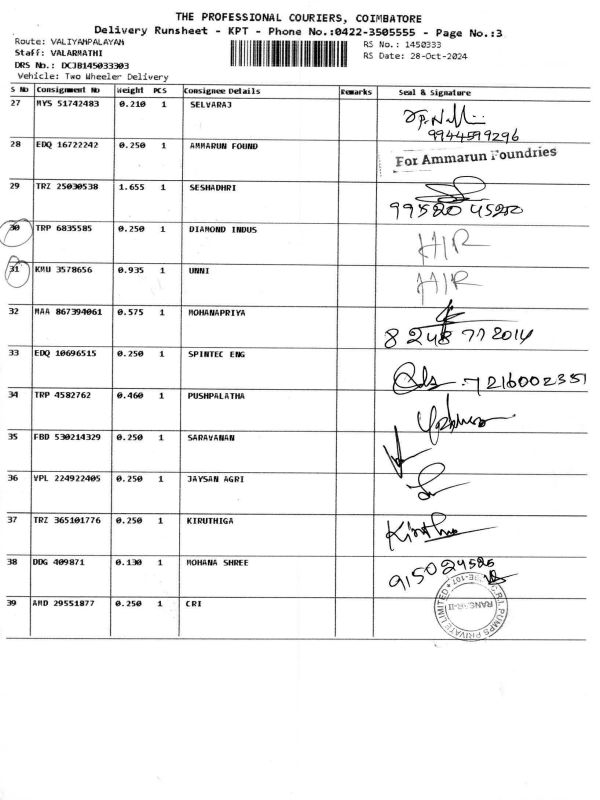 THE PROFESSIONAL COURIERS, COIMBATORE
Delivery Runsheet - KPT - Phone No.:0422-3505555 - Page No.:3
Route: VALIYAMPALAYAM
RS No.: 1450333
Staff: VALARMATHI
RS Date: 28-Oct-2024
DRS No.: DCJB145033303
Vehicle: Two Wheeler Delivery
S No Consignment No Weight PCS Consignee Details Remarks Seal & Signature
27 MYS 51742483 0.210 1 SELVARAJ
9944599296
28 EDQ 16722242 0.250 1 AMMARUN FOUND For Ammarun Foundries
29 TRZ 25030538 1.655 1 SESHADHRI
99520 45250
30 TRP 6835585 0.250 1 DIAMOND INDUS H/R
31 KMU 3578656 0.935 1 UNNI H/R
32 MAA 867394061 0.575 1 MOHANAPRIYA
8 248 77 2014
33 EDQ 10696515 0.250 1 SPINTEC ENG
7216002351
34 TRP 4582762 0.460 1 PUSHPALATHA
35 FBD 530214329 0.250 1 SARAVANAN
36 VPL 224922405 0.250 1 JAYSAN AGRI
37 TRZ 365101776 0.250 1 KIRUTHIGA
38 DDG 409871 0.130 1 MOHANA SHREE
9150245
39 AMD 29551877 0.250 1 CRI
C.R.I. PUMPS PRIVATE LIMITED